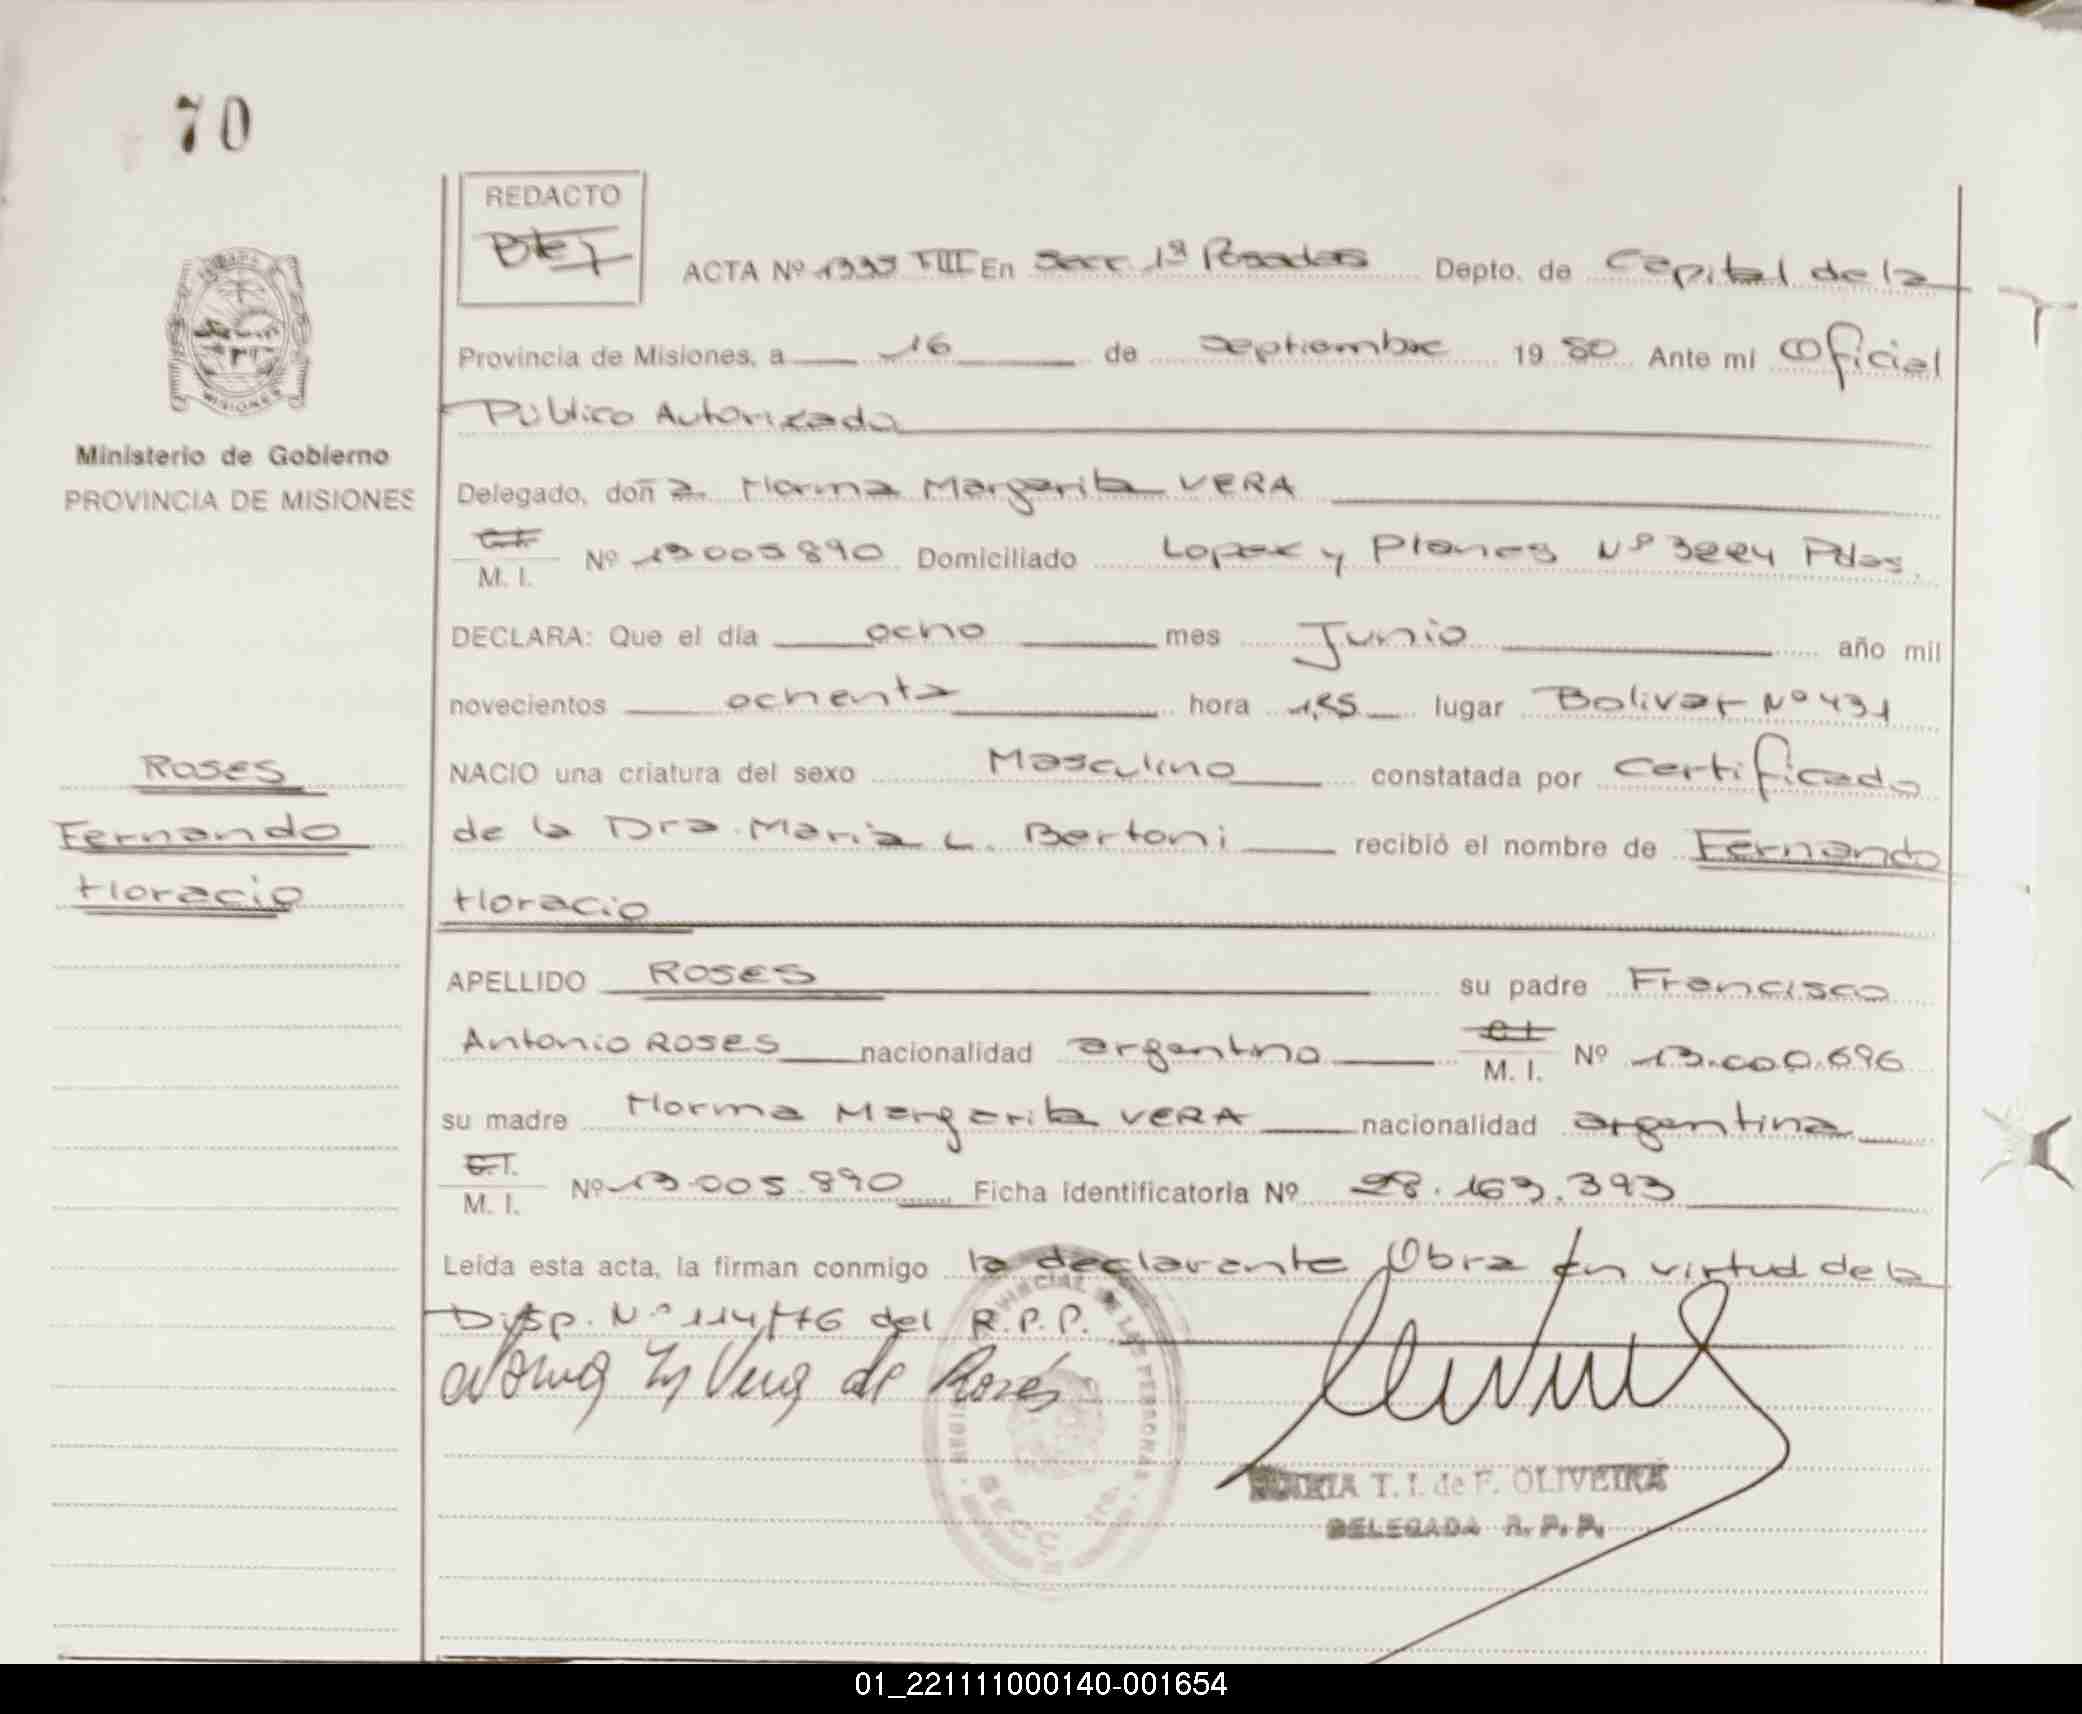 70
REDACTO
ACTA Nº 1335 TIII En Secc. 1ª Posadas Depto. de Capital de la
MISIONES
Provincia de Misiones, a 16 de septiembre 19 80 Ante mi Oficial
Público Autorizado
Ministerio de Gobierno
PROVINCIA DE MISIONES
Delegado, doña Norma Margarita VERA
C.I. M. I. Nº 13005890 Domiciliado Lopez y Planes Nº 3224 Pdas.
DECLARA: Que el día ocho mes Junio año mil
novecientos ochenta hora 1,55 lugar Bolivar Nº 431
Roses
NACIO una criatura del sexo Masculino constatada por certificado
Fernando
de la Dra. Maria L. Bertoni recibió el nombre de Fernando
Horacio
Horacio
APELLIDO ROSES su padre Francisco
Antonio ROSES nacionalidad argentino C.I. M. I. Nº 13.000.696
su madre Norma Margarita VERA nacionalidad argentina
C.I. M. I. Nº 13.005.890 Ficha Identificatoria Nº 28.163.393
Leída esta acta, la firman conmigo la declarante Obra en virtud de la
Disp. Nº 114/76 del R.P.P.
Norma M Vera de Rosés
PROVINCIAL DE LAS PERSONAS
MARIA T. I. de F. OLIVEIRA
DELEGADA R. P. P.
01_221111000140-001654